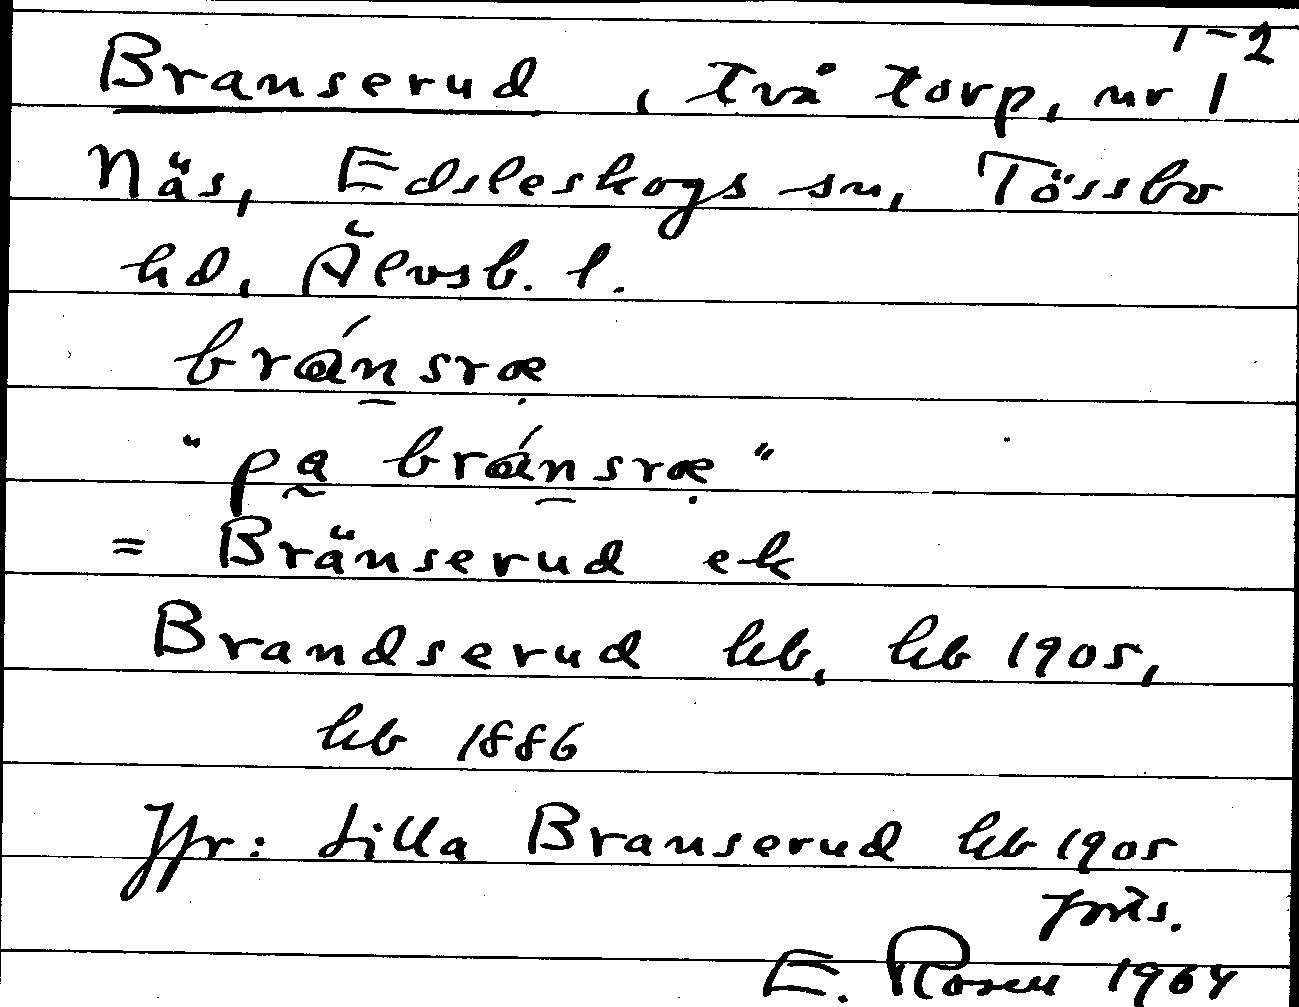 1-2
Branserud, två torp, nr 1
Näs, Edsleskogs sn, Tössbo
hd, Älvsb. l.
bránsræ
"pa bránsræ"
= Bränserud ek
Brandserud kb, hb 1905,
hb 1886
Jfr: Lilla Branserud hb 1905
E. Rosell 1964